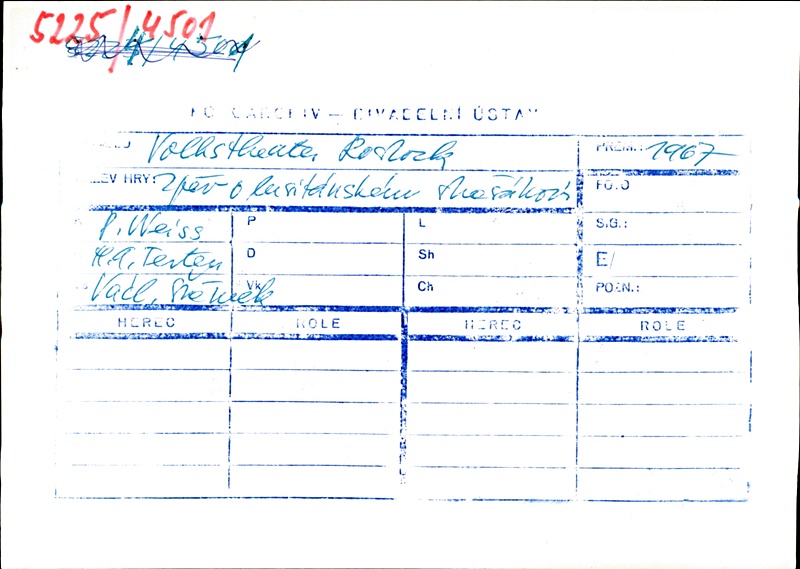 5225/4501
FOTOARCHIV – DIVADELNÍ ÚSTAV
Volkstheater Rostock PREM.: 1967
EV HRY: Zpěv o lusitánském strašákovi FOTO
P. Weiss P L S.G.:
H.A. D Sh E/
Václ. Vk Ch POZN.:
HEREC ROLE HEREC ROLE